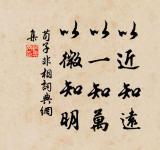 以近知遠
以一知萬
以微知明
荀子非相詞典網
集